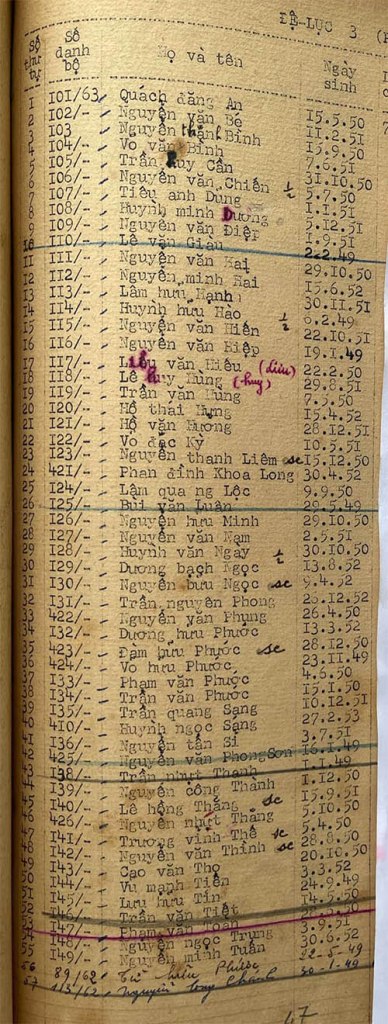 ĐỆ-LỤC 3
Số thứ tự Số danh bộ Họ và tên Ngày sinh
1 101/63 Quách đăng An 15.5.50
2 102/-- Nguyễn văn Bé 11.2.51
3 103 Nguyễn thành Bình 15.9.50
4 104/-- Vo văn Bình 7.6.51
5 105/-- Trần huy Cần 31.10.50
6 106/-- Nguyễn văn Chiến ½ 5.7.50
7 107/-- Tiêu anh Dung 1.1.51
8 108/-- Huỳnh minh Dương 5.12.51
9 109/-- Nguyễn văn Điệp 1.9.51
10 110/-- Lê văn Giàu 2.2.49
11 111/-- Nguyễn văn Hai 29.10.50
12 112/-- Nguyễn minh Hai 15.6.52
13 113/-- Lâm hưu Hạnh 30.11.51
14 114/-- Huỳnh hưu Hào ½
15 115/-- Nguyễn văn Hiền 22.10.51
16 116/-- Nguyễn văn Hiệp 19.1.49
17 117/-- Liêu văn Hiếu (Liêu) 22.2.50
18 118/-- Lê huy Hùng (-huy) 29.8.51
19 119/-- Trần văn Hùng 7.5.50
20 120/-- Hồ thai Hưng 15.4.52
21 121/-- Hồ văn Hương 28.12.51
22 122/-- Vo đạc Kỳ 10.5.51
23 123/-- Nguyễn thanh Liêm sc 15.12.50
24 421/-- Phan đình Khoa Long 30.4.52
25 124/-- Lâm qua ng Lộc 9.9.50
26 125/-- Bùi văn Luân 29.5.49
27 126/-- Nguyễn hưu Minh 29.10.50
28 127/-- Nguyễn văn Nam 2.5.51
29 128/-- Huỳnh văn Ngay ½ 30.10.50
30 129/-- Dương bạch Ngọc 13.8.52
31 130/-- Nguyễn bưu Ngọc sc 9.4.52
32 131/-- Trần nguyên Phong 26.12.52
33 422/-- Nguyễn văn Phụng 26.4.50
34 132/-- Dương hưu Phước 13.3.52
35 423/-- Đàm bưu Phước sc 28.12.50
36 424/-- Vo hưu Phước 23.11.49
37 133/-- Phạm văn Phước 4.6.50
38 134/-- Trần văn Phước 15.1.50
39 135/-- Trần quang Sang 10.12.51
40 410/-- Huỳnh ngọc Sang 27.2.53
41 136/-- Nguyễn tấn Si 3.7.51
42 425/-- Nguyễn văn PhongSơn 16.1.49
43 138/-- Trần nhựt Thanh 1.1.49
44 139/-- Nguyễn công Thành 1.12.50
45 140/-- Lê hồng Thăng sc 15.9.51
46 426/-- Nguyễn nhựt Thăng 5.10.50
47 141/-- Trương vinh Thế sc 5.4.50
48 142/-- Nguyễn văn Thinh sc 28.8.50
49 143/-- Cao văn Thọ 20.10.50
50 144/-- Vu mạnh Tiến 3.3.52
51 145/-- Lưu hưu Tín 24.9.49
52 146/-- Trần văn Tiết 14.5.50
53 147/-- Phạm văn Toàn
54 148/-- Nguyễn ngọc Trung 3.9.51
55 149/-- Nguyễn minh Tuấn 30.6.52
56 89/62 Từ hiếu Phước 22-5-49
57 113/62 Nguyễn long Chánh 30-1-49
47